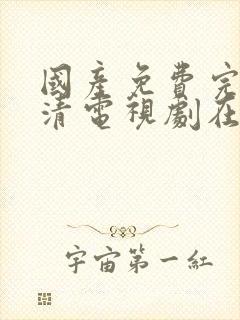 國產免費完
清電視劇在
宇宙第一紅